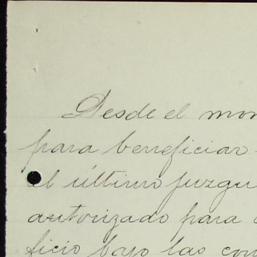 Desde el mom
para beneficiar
el último juzgu
autorizado para
ficio bajo las con